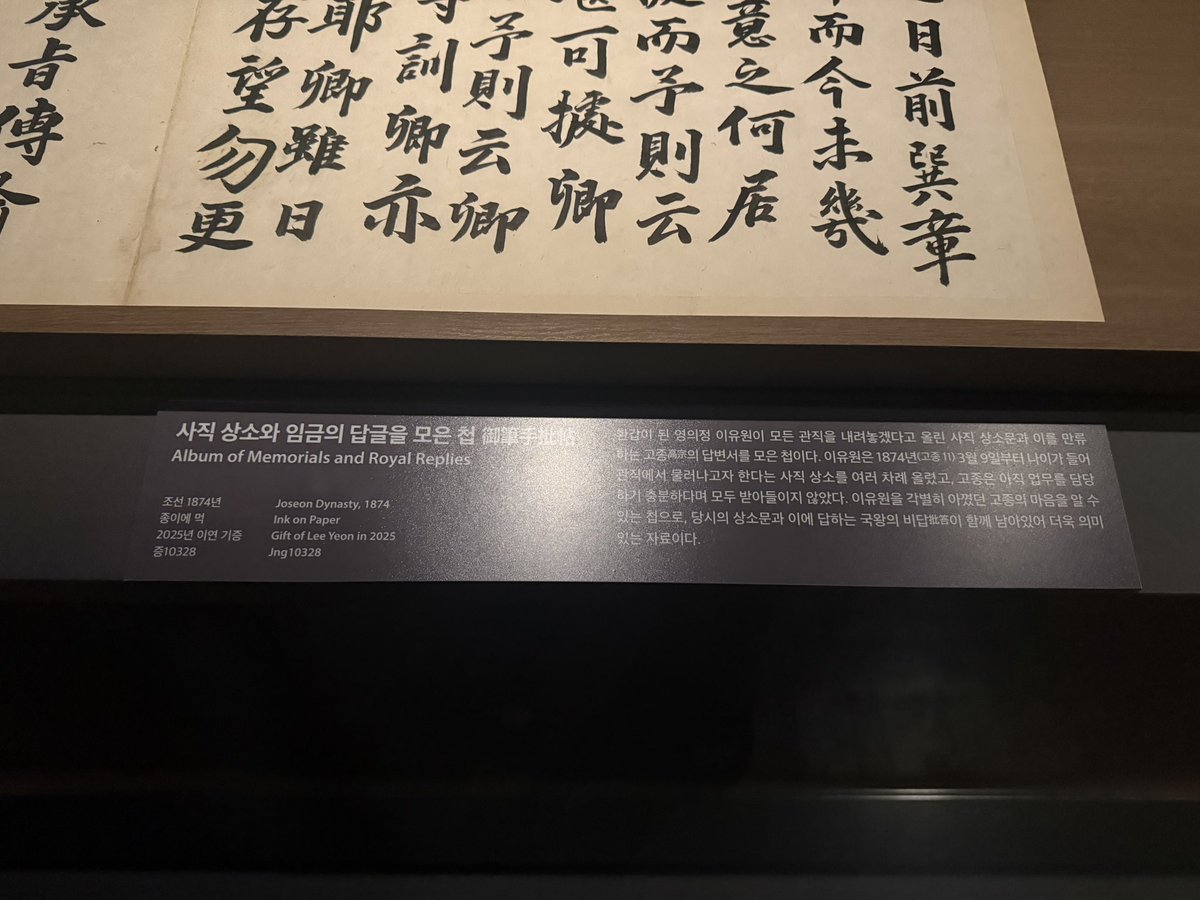 日前巽章
而今未幾
意之何居
而予則云
可據卿
予則云卿
訓卿亦
耶卿雖日
存望勿更
承旨傳
사직 상소와 임금의 답글을 모은 첩 御筆手批帖
Album of Memorials and Royal Replies
조선 1874년
종이에 먹
2025년 이연 기증
증10328
Joseon Dynasty, 1874
Ink on Paper
Gift of Lee Yeon in 2025
Jng10328
환갑이 된 영의정 이유원이 모든 관직을 내려놓겠다고 올린 사직 상소문과 이를 만류
하는 고종高宗의 답변서를 모은 첩이다. 이유원은 1874년(고종 11) 3월 9일부터 나이가 들어
관직에서 물러나고자 한다는 사직 상소를 여러 차례 올렸고, 고종은 아직 업무를 담당
하기 충분하다며 모두 받아들이지 않았다. 이유원을 각별히 아꼈던 고종의 마음을 알 수
있는 첩으로, 당시의 상소문과 이에 답하는 국왕의 비답批答이 함께 남아있어 더욱 의미
있는 자료이다.